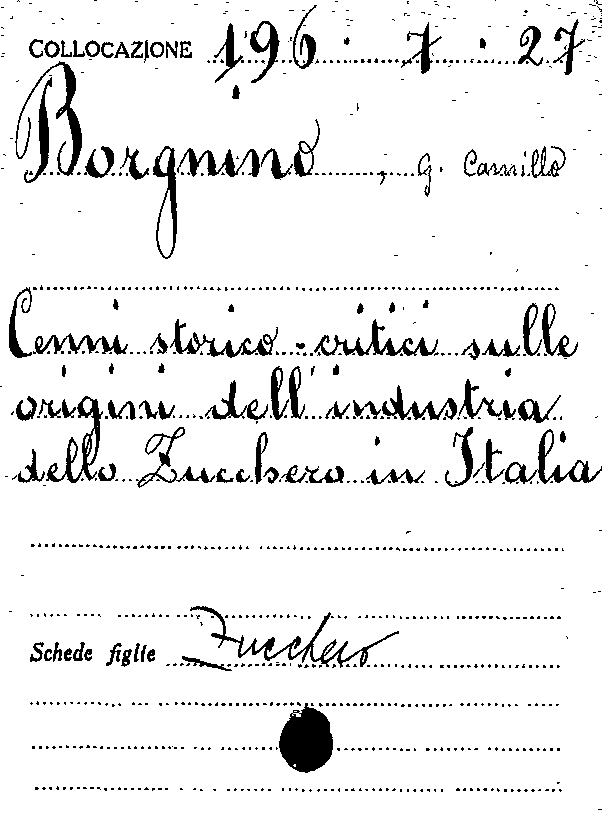 COLLOCAZIONE 196 . 7 . 27
Borgnino, G. Camillo
Cenni storico-critici sulle
origini dell'industria
dello Zucchero in Italia
Schede figlie Zucchero